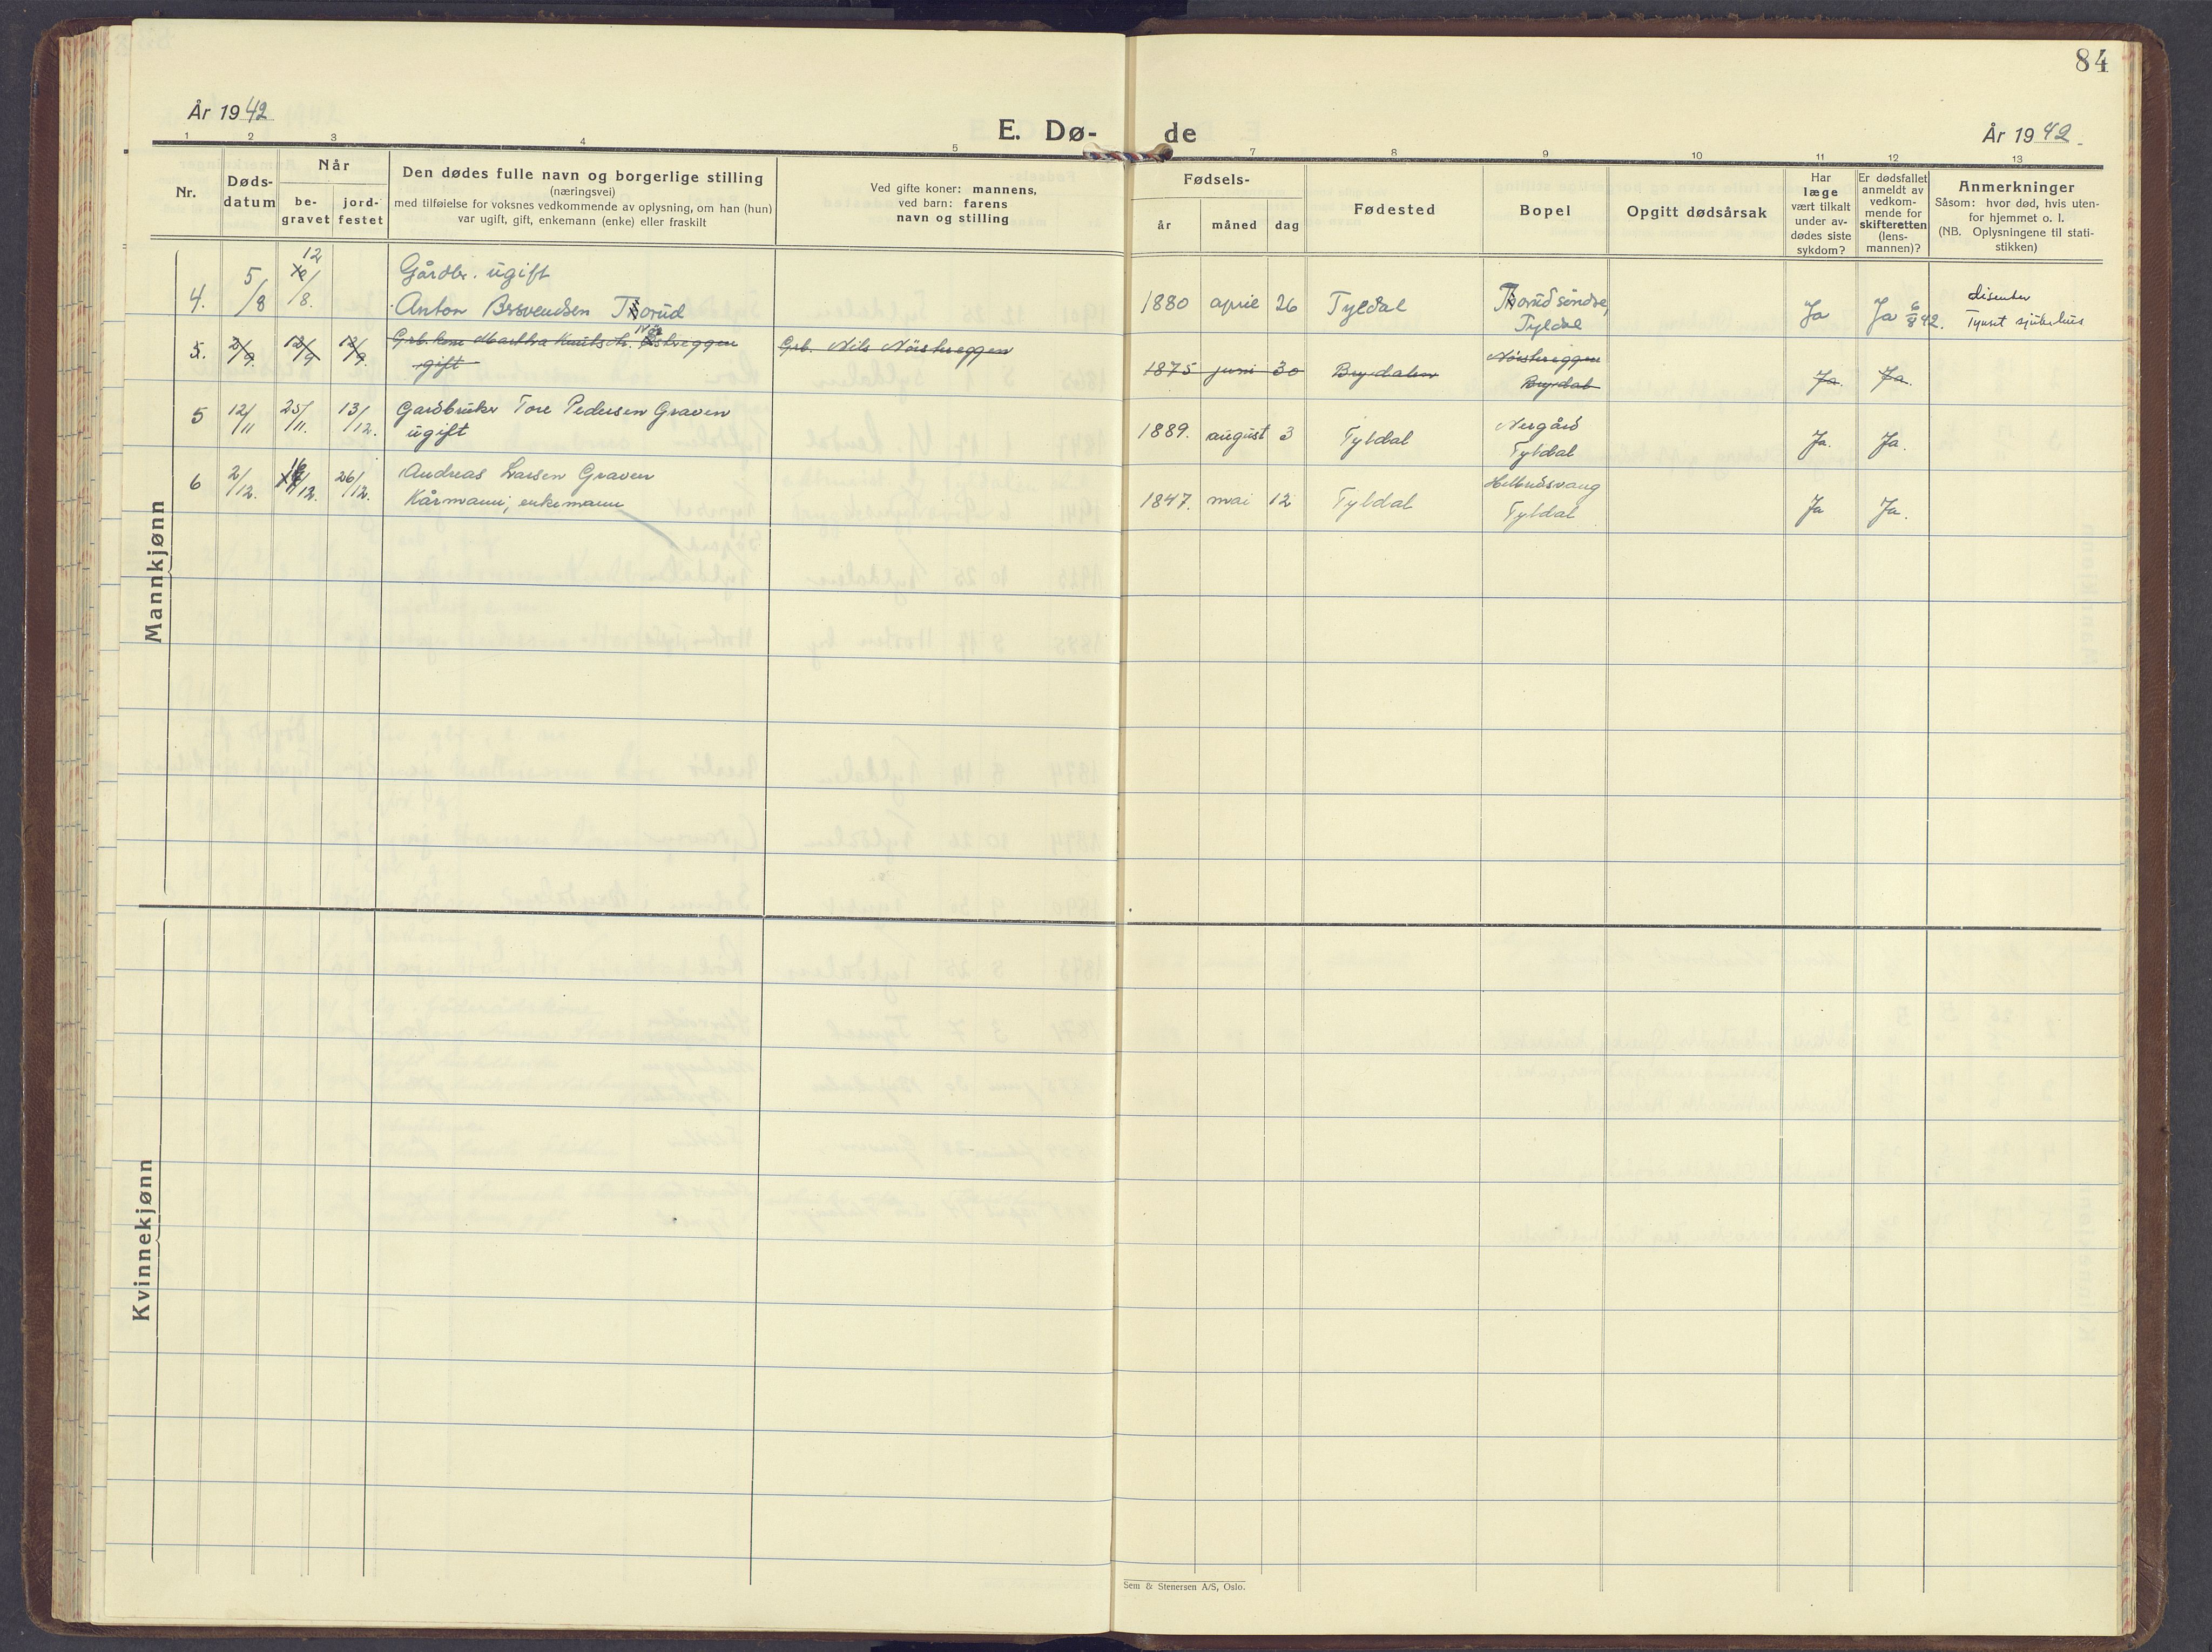 84
År 1942
E. Dø-
de
År 1942.
1 2 3 4 5 7 8 9 10 11 12 13
Nr.
Døds-
datum
Når
be-
gravet
jord-
festet
Den dødes fulle navn og borgerlige stilling
(næringsvei)
med tilføielse for voksnes vedkommende av oplysning, om han (hun)
var ugift, gift, enkemann (enke) eller fraskilt
Ved gifte koner: mannens,
ved barn: farens
navn og stilling
Fødsels-
år
måned
dag
Fødested
Bopel
Opgitt dødsårsak
Har
læge
vært tilkalt
under av-
dødes siste
sykdom?
Er dødsfallet
anmeldt av
vedkom-
mende for
skifteretten
(lens-
mannen)?
Anmerkninger
Såsom: hvor død, hvis uten-
for hjemmet o. l.
(NB. Oplysningene til stati-
stikken)
Mannkjønn
4. 5/8 12/8. Gårdbr. ugift
Anton Esvendsen Torud
1880 april 26 Tyldal
Torud søndre,
Tyldal
Ja Ja 6/8 42.
disenter
Tynset sjukehus
5. 2/9. 12/9 12/9. Grb. kone Martha Knutsdtr. Nöistreggen
gift
Grb. Nils Nöistreggen
1875 juni 30 Brydalen
Nöistreggen
Brydal
Ja. Ja.
5 12/11 25/11. 13/12. Gardbruker Tore Pedersen Graven
ugift
1889. august 3 Tyldal
Nergård
Tyldal
Ja. Ja.
6 2/12. 16/12. 26/12. Andreas Larsen Graven
Kårmann, enkemann
1847. mai 12 Tyldal
Tyldal
Ja Ja.
Kvinnekjønn
Sem & Stenersen A/S, Oslo.